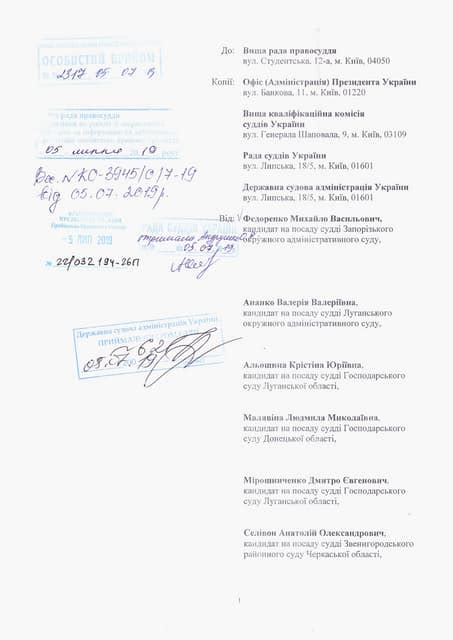 До: Вища рада правосуддя
вул. Студентська, 12-а, м. Київ, 04050
Копії: Офіс (Адміністрація) Президента України
вул. Банкова, 11, м. Київ, 01220
Вища кваліфікаційна комісія
суддів України
вул. Генерала Шаповала, 9, м. Київ, 03109
Рада суддів України
вул. Липська, 18/5, м. Київ, 01601
Державна судова адміністрація України
вул. Липська, 18/5, м. Київ, 01601
Від: Федоренко Михайло Васильович,
кандидат на посаду судді Запорізького
окружного адміністративного суду,
Ананко Валерія Валеріївна,
кандидат на посаду судді Луганського
окружного адміністративного суду,
Альошина Крістіна Юріївна,
кандидат на посаду судді Господарського
суду Луганської області,
Малявіна Людмила Миколаївна,
кандидат на посаду судді Господарського
суду Донецької області,
Мірошниченко Дмитро Євгенович,
кандидат на посаду судді Господарського
суду Луганської області,
Селівон Анатолій Олександрович,
кандидат на посаду судді Звенигородського
районного суду Черкаської області,
ОСОБИСТИЙ ПРИЙОМ
2317 05 07 19
рада правосуддя
05 липня 2019 року
Вх. № КО-3945/0/7-19
від 05.07.2019р.
- 5 ЛИП 2019
№ 22/032194-26П
РАДА СУДДІВ УКРАЇНИ
отримала
05.07.19
Державна судова адміністрація України
1